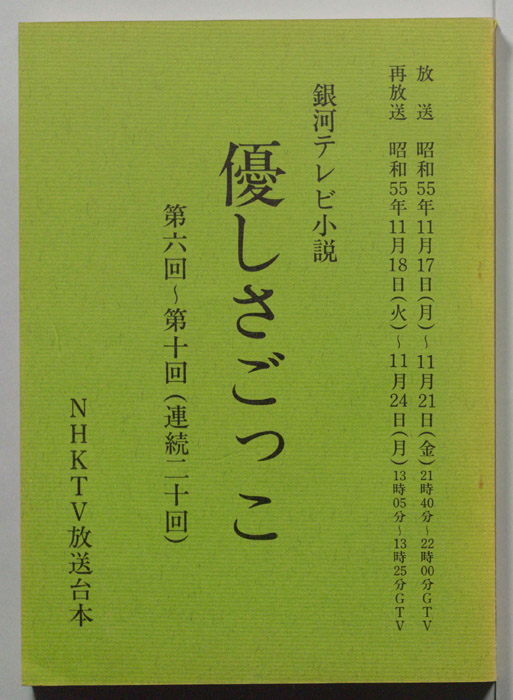 放　送　昭和55年11月17日(月)～11月21日(金)21時40分～22時00分GTV
再放送　昭和55年11月18日(火)～11月24日(月)13時05分～13時25分GTV
銀河テレビ小説
優しさごっこ
第六回～第十回(連続二十回)
NHKTV放送台本